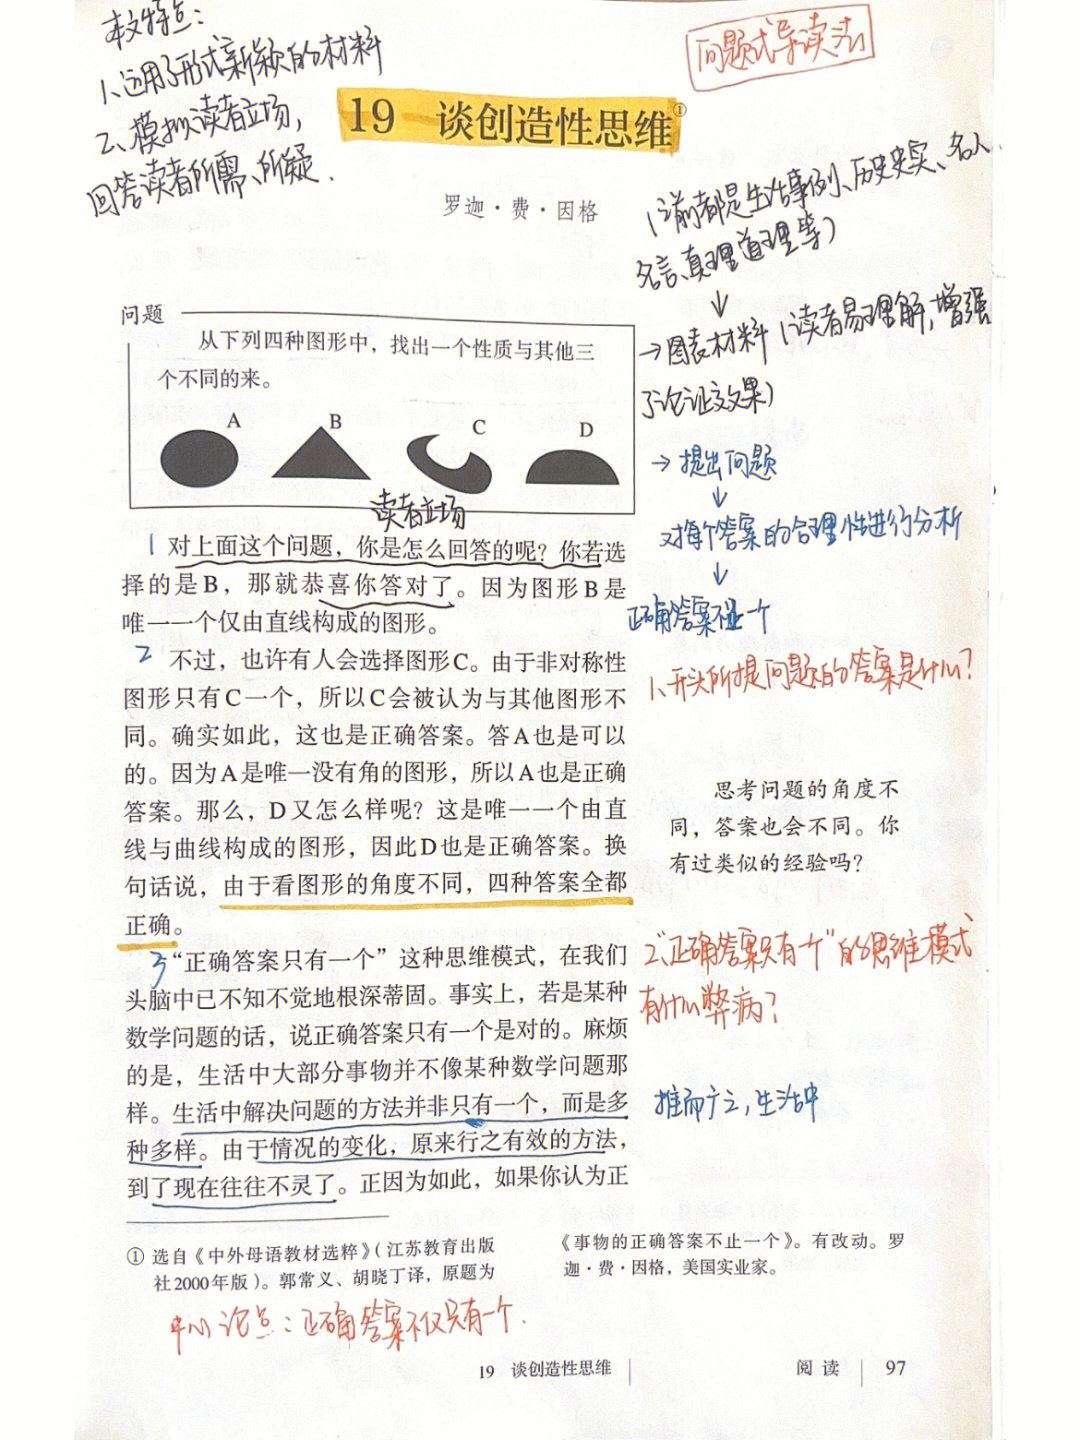 本文特点：
1、运用了形式新颖的材料
2、模拟读者立场，
回答读者所需、所疑.
问题式导读法
19 谈创造性思维①
罗迦·费·因格
（之前都是生活事例、历史史实、名人
名言、真理道理等）
↓
→图表材料（读者易理解，增强
了论证效果）
→提出问题
↓
对每个答案的合理性进行分析
↓
正确答案不止一个
1、开头所提问题的答案是什么？
问题
从下列四种图形中，找出一个性质与其他三
个不同的来。
A B C D
读者立场
1 对上面这个问题，你是怎么回答的呢？你若选
择的是B，那就恭喜你答对了。因为图形B是
唯一一个仅由直线构成的图形。
2 不过，也许有人会选择图形C。由于非对称性
图形只有C一个，所以C会被认为与其他图形不
同。确实如此，这也是正确答案。答A也是可以
的。因为A是唯一没有角的图形，所以A也是正确
答案。那么，D又怎么样呢？这是唯一一个由直
线与曲线构成的图形，因此D也是正确答案。换
句话说，由于看图形的角度不同，四种答案全都
正确。
思考问题的角度不
同，答案也会不同。你
有过类似的经验吗？
3 “正确答案只有一个”这种思维模式，在我们
头脑中已不知不觉地根深蒂固。事实上，若是某种
数学问题的话，说正确答案只有一个是对的。麻烦
的是，生活中大部分事物并不像某种数学问题那
样。生活中解决问题的方法并非只有一个，而是多
种多样。由于情况的变化，原来行之有效的方法，
到了现在往往不灵了。正因为如此，如果你认为正
2、“正确答案只有一个”的思维模式
有什么弊病？
推而广之，生活中
① 选自《中外母语教材选粹》（江苏教育出版
社2000年版）。郭常义、胡晓丁译，原题为
《事物的正确答案不止一个》。有改动。罗
迦·费·因格，美国实业家。
中心论点：正确答案不仅只有一个.
19 谈创造性思维
阅读 97